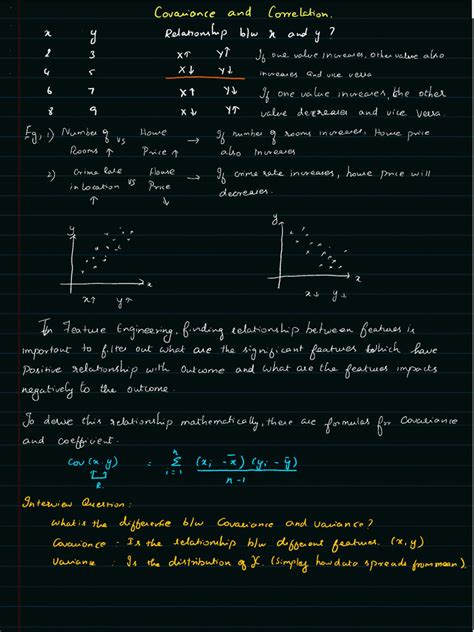 Covariance and Correlation.
x y Relationship b/w x and y ?
2 3 X↑ Y↑ If one value increases, other value also
4 5 X↓ Y↓ increases and vice versa
6 7 X↑ Y↓ If one value increases, the other
8 9 X↓ Y↑ value decreases and vice versa.
Eg, 1) Number of vs House → If number of rooms increases, House price
Rooms ↑ Price ↑ also increases
2) Crime Rate vs House → If crime rate increases, house price will
in location Price decreases.
↑ ↓
y y
x x
x↑ y↑ x↓ y↓
In Feature Engineering, finding relationship between features is
important to filter out what are the significant features which have
Positive relationship with Outcome and what are the features impacts
negatively to the outcome.
To derive this relationship mathematically, there are formulas for Covariance
and coefficient.
Cov (x, y) = n Σ i=1 (xi - x̄) (yi - ȳ)
n-1
Interview Question:
What is the difference b/w Covariance and variance?
Covariance : Is the relationship b/w different features. (x, y)
Variance : Is the distribution of X. (Simply how data spreads from mean).